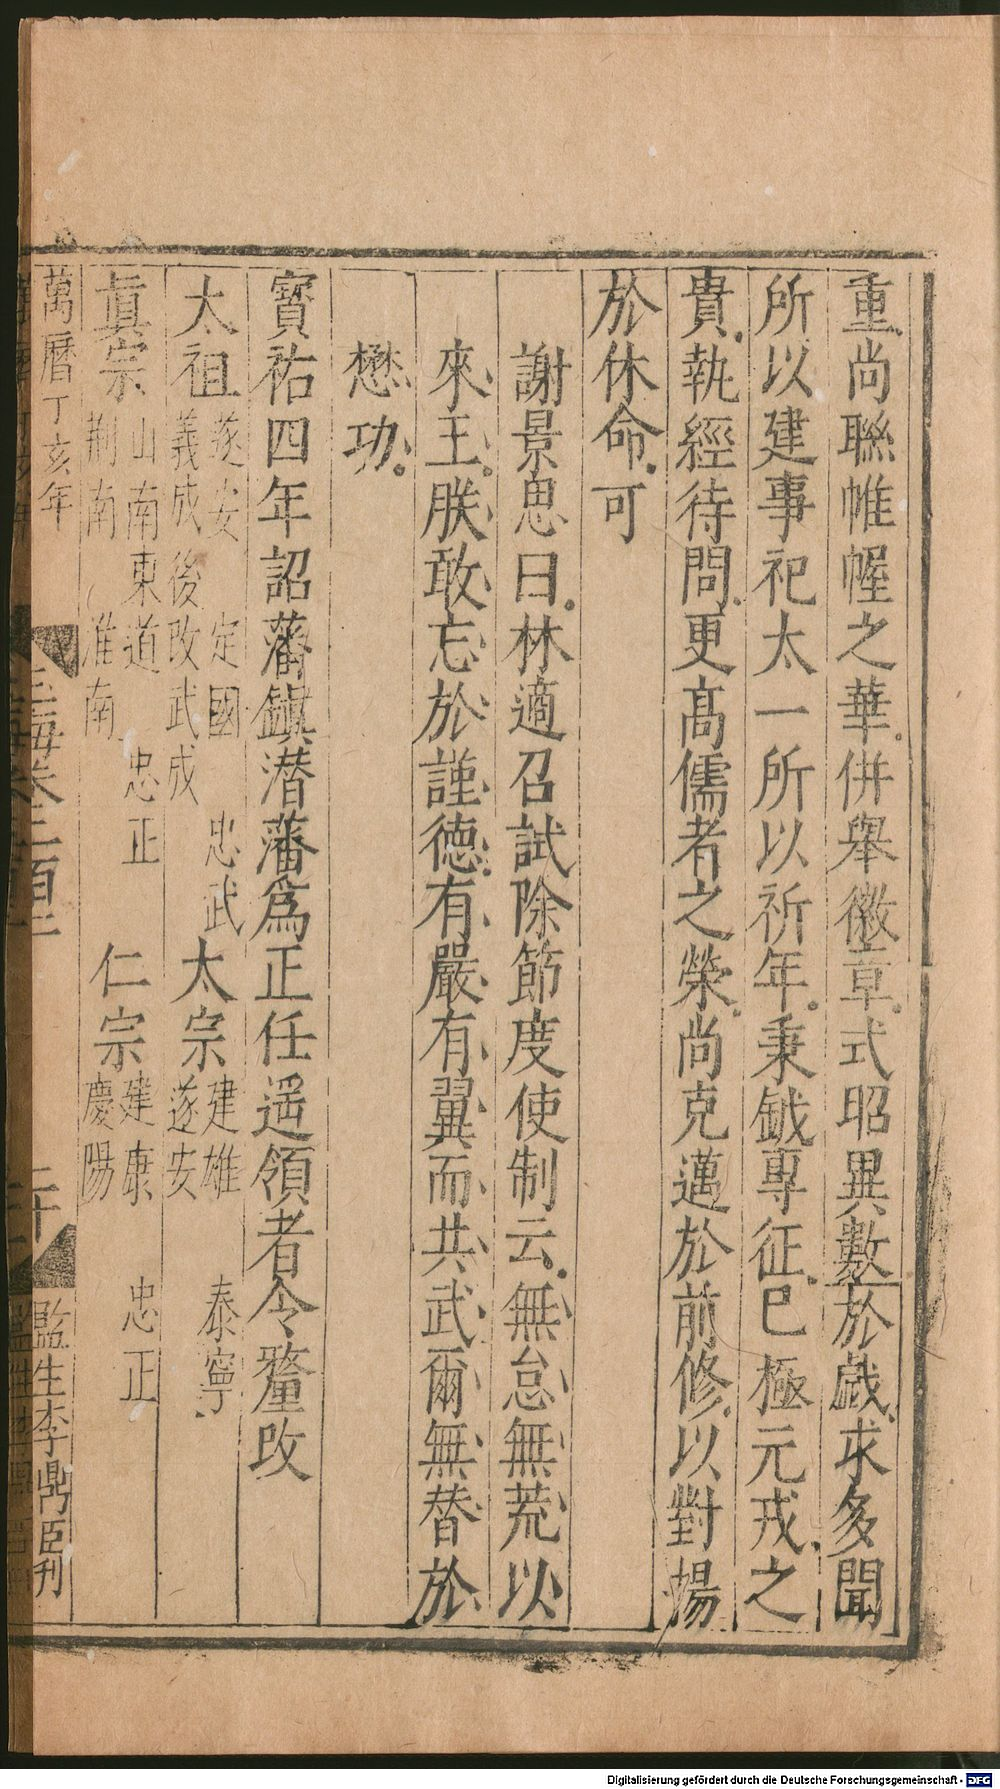 重尚聯帷幄之華併舉徽章式昭異數於戲求多聞
所以建事祀太一所以祈年秉鉞專征巳極元戎之
貴執經待問更髙儒者之榮尚克邁於前修以對揚
於休命可
謝景思曰林適召試除節度使制云無怠無荒以
來王朕敢忘於謹德有嚴有翼而共武爾無替於
懋功
寳祐四年詔藩鎮潜藩爲正任遥領者令釐改
太祖 遂安 定國 忠武 義成後改武成 太宗 建雄 泰寧 遂安
眞宗 山南東道 忠正 荆南 淮南 仁宗 建康 忠正 慶陽
萬曆丁亥年 玉海卷二百 二十 監生李鼎臣刋
Digitalisierung gefördert durch die Deutsche Forschungsgemeinschaft - DFG